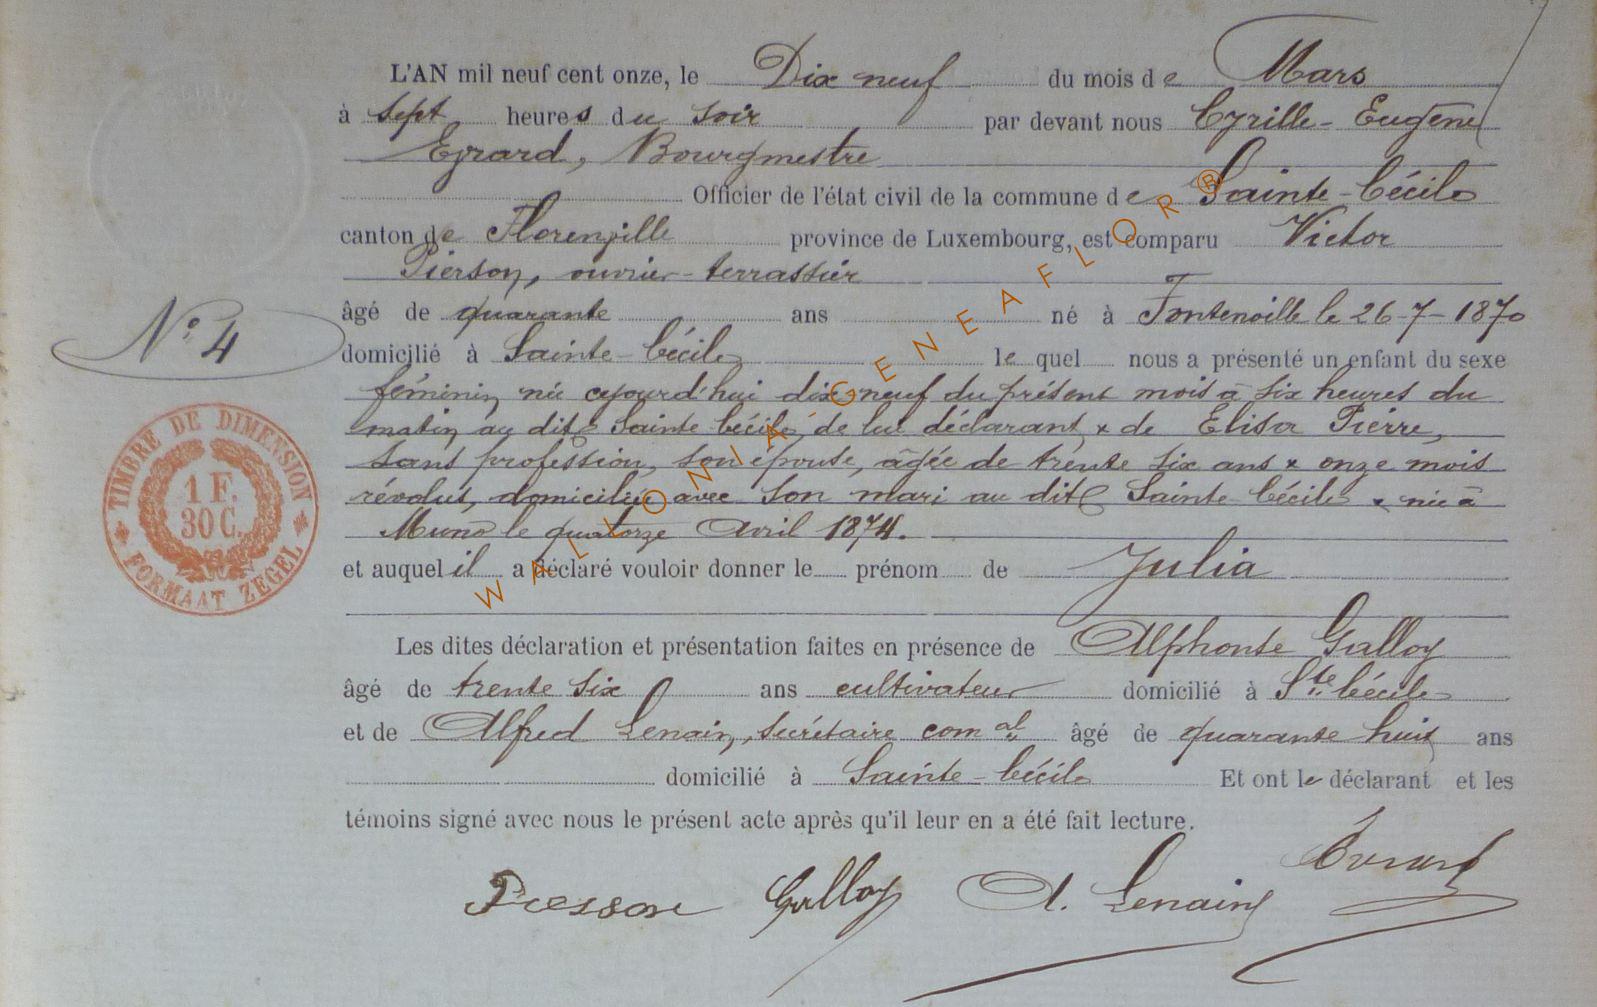 L'AN mil neuf cent onze, le Dix neuf du mois de Mars
à sept heures du soir par devant nous Cyrille-Eugène
Evrard, Bourgmestre
Officier de l'état civil de la commune de Sainte-Cécile
canton de Florenville province de Luxembourg, est comparu Victor
Pierson, ouvrier-terrassier
âgé de quarante ans né à Fontenoille le 26-7-1870
N° 4
domicilié à Sainte-Cécile lequel nous a présenté un enfant du sexe
féminin, née cejourd'hui dix-neuf du présent mois à six heures du
matin au dit Sainte Cécile, de lui déclarant, & de Elisa Pierre,
sans profession, son épouse, âgée de trente six ans & onze mois
révolus, domiciliée avec son mari au dit Sainte-Cécile & née à
Muno le quatorze Avril 1874.
et auquel il a déclaré vouloir donner le prénom de Julia
Les dites déclaration et présentation faites en présence de Alphonse Galloy
âgé de trente six ans cultivateur domicilié à Ste Cécile
et de Alfred Lenain, secrétaire com al âgé de quarante huit ans
domicilié à Sainte-Cécile Et ont le déclarant et les
témoins signé avec nous le présent acte après qu'il leur en a été fait lecture.
Evrard
Piersson Galloy A. Lenain
TIMBRE DE DIMENSION
1 F.
30 C.
FORMAAT ZEGEL
WALLONIA-GENEAFLOR®